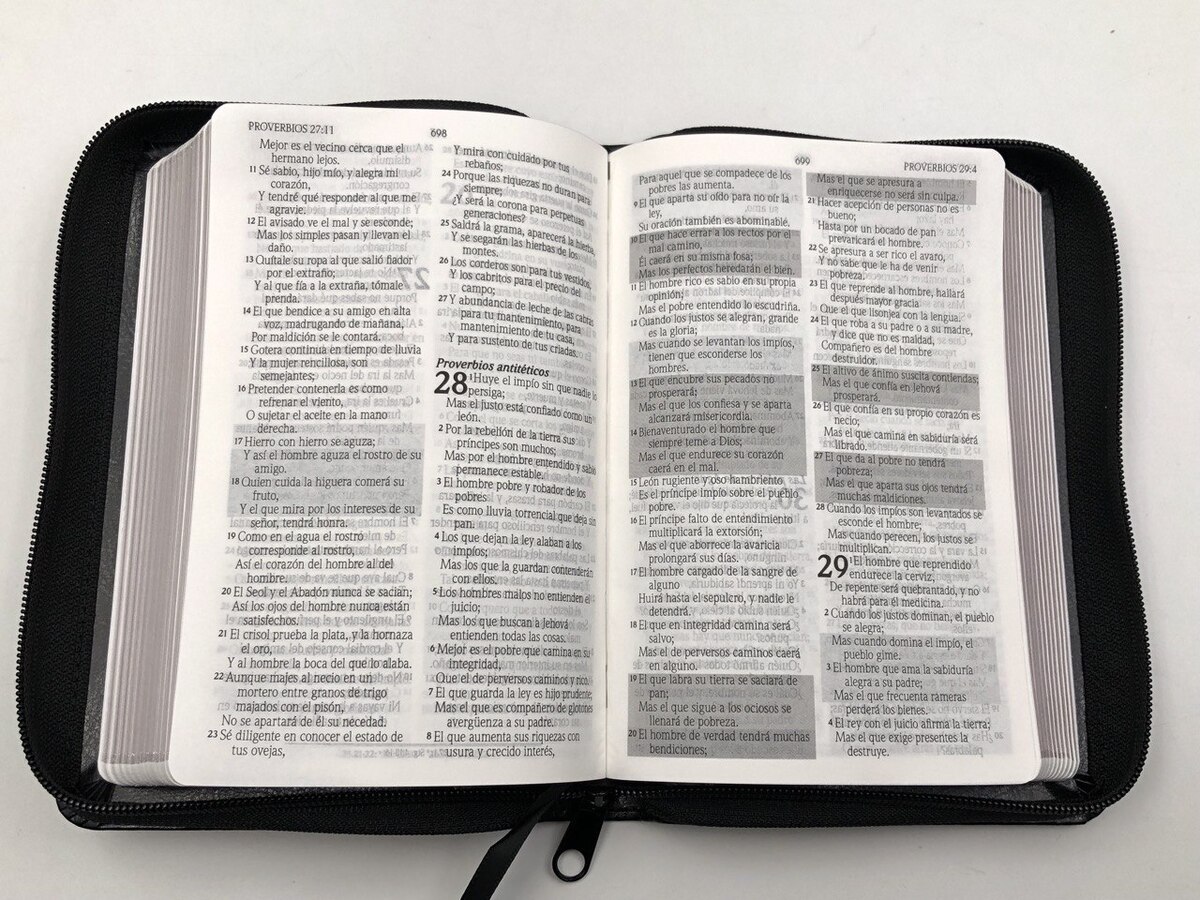 PROVERBIOS 27:11
698
Mejor es el vecino cerca que el
hermano lejos.
11 Sé sabio, hijo mío, y alegra mi
corazón,
Y tendré qué responder al que me
agravie.
12 El avisado ve el mal y se esconde;
Mas los simples pasan y llevan el
daño.
13 Quítale su ropa al que salió fiador
por el extraño;
Y al que fía a la extraña, tómale
prenda.
14 El que bendice a su amigo en alta
voz, madrugando de mañana,
Por maldición se le contará.
15 Gotera continua en tiempo de lluvia
Y la mujer rencillosa, son
semejantes;
16 Pretender contenerla es como
refrenar el viento,
O sujetar el aceite en la mano
derecha.
17 Hierro con hierro se aguza;
Y así el hombre aguza el rostro de su
amigo.
18 Quien cuida la higuera comerá su
fruto,
Y el que mira por los intereses de su
señor, tendrá honra.
19 Como en el agua el rostro
corresponde al rostro,
Así el corazón del hombre al del
hombre.
20 El Seol y el Abadón nunca se sacian;
Así los ojos del hombre nunca están
satisfechos.
21 El crisol prueba la plata, y la hornaza
el oro,
Y al hombre la boca del que lo alaba.
22 Aunque majes al necio en un
mortero entre granos de trigo
majados con el pisón,
No se apartará de él su necedad.
23 Sé diligente en conocer el estado de
tus ovejas,
Y mira con cuidado por tus
rebaños;
24 Porque las riquezas no duran para
siempre;
¿Y será la corona para perpetuas
generaciones?
25 Saldrá la grama, aparecerá la hierba,
Y se segarán las hierbas de los
montes.
26 Los corderos son para tus vestidos,
Y los cabritos para el precio del
campo;
27 Y abundancia de leche de las cabras
para tu mantenimiento, para
mantenimiento de tu casa,
Y para sustento de tus criadas.
Proverbios antitéticos
28 1 Huye el impío sin que nadie lo
persiga;
Mas el justo está confiado como un
león.
2 Por la rebelión de la tierra sus
príncipes son muchos;
Mas por el hombre entendido y sabio
permanece estable.
3 El hombre pobre y robador de los
pobres
Es como lluvia torrencial que deja sin
pan.
4 Los que dejan la ley alaban a los
impíos;
Mas los que la guardan contenderán
con ellos.
5 Los hombres malos no entienden el
juicio;
Mas los que buscan a Jehová
entienden todas las cosas.
6 Mejor es el pobre que camina en su
integridad,
Que el de perversos caminos y rico.
7 El que guarda la ley es hijo prudente;
Mas el que es compañero de glotones
avergüenza a su padre.
8 El que aumenta sus riquezas con
usura y crecido interés,
699
PROVERBIOS 29:4
Para aquel que se compadece de los
pobres las aumenta.
9 El que aparta su oído para no oír la
ley,
Su oración también es abominable.
10 El que hace errar a los rectos por el
mal camino,
Él caerá en su misma fosa;
Mas los perfectos heredarán el bien.
11 El hombre rico es sabio en su propia
opinión;
Mas el pobre entendido lo escudriña.
12 Cuando los justos se alegran, grande
es la gloria;
Mas cuando se levantan los impíos,
tienen que esconderse los
hombres.
13 El que encubre sus pecados no
prosperará;
Mas el que los confiesa y se aparta
alcanzará misericordia.
14 Bienaventurado el hombre que
siempre teme a Dios;
Mas el que endurece su corazón
caerá en el mal.
15 León rugiente y oso hambriento
Es el príncipe impío sobre el pueblo
pobre.
16 El príncipe falto de entendimiento
multiplicará la extorsión;
Mas el que aborrece la avaricia
prolongará sus días.
17 El hombre cargado de la sangre de
alguno
Huirá hasta el sepulcro, y nadie le
detendrá.
18 El que en integridad camina será
salvo;
Mas el de perversos caminos caerá
en alguno.
19 El que labra su tierra se saciará de
pan;
Mas el que sigue a los ociosos se
llenará de pobreza.
20 El hombre de verdad tendrá muchas
bendiciones;
Mas el que se apresura a
enriquecerse no será sin culpa.
21 Hacer acepción de personas no es
bueno;
Hasta por un bocado de pan
prevaricará el hombre.
22 Se apresura a ser rico el avaro,
Y no sabe que le ha de venir
pobreza.
23 El que reprende al hombre, hallará
después mayor gracia
Que el que lisonjea con la lengua.
24 El que roba a su padre o a su madre,
y dice que no es maldad,
Compañero es del hombre
destruidor.
25 El altivo de ánimo suscita contiendas;
Mas el que confía en Jehová
prosperará.
26 El que confía en su propio corazón es
necio;
Mas el que camina en sabiduría será
librado.
27 El que da al pobre no tendrá
pobreza;
Mas el que aparta sus ojos tendrá
muchas maldiciones.
28 Cuando los impíos son levantados se
esconde el hombre;
Mas cuando perecen, los justos se
multiplican.
29 1 El hombre que reprendido
endurece la cerviz,
De repente será quebrantado, y no
habrá para él medicina.
2 Cuando los justos dominan, el pueblo
se alegra;
Mas cuando domina el impío, el
pueblo gime.
3 El hombre que ama la sabiduría
alegra a su padre;
Mas el que frecuenta rameras
perderá los bienes.
4 El rey con el juicio afirma la tierra;
Mas el que exige presentes la
destruye.